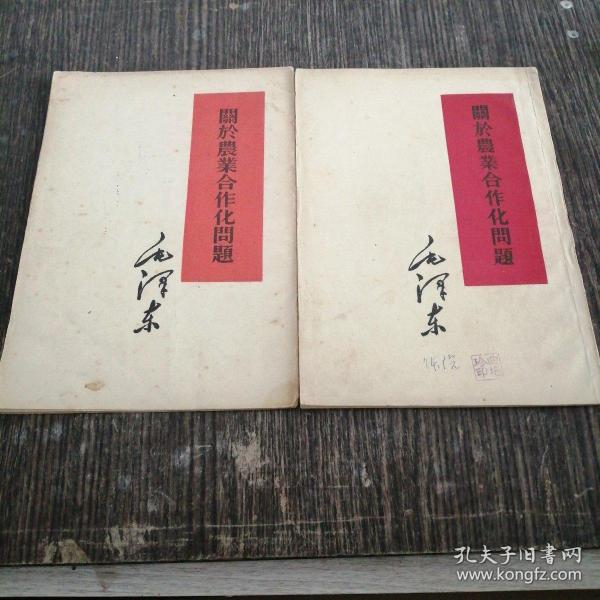 關於農業合作化問題
毛泽东
關於農業合作化問題
毛泽东
孔夫子旧書网
www.kongfz.com